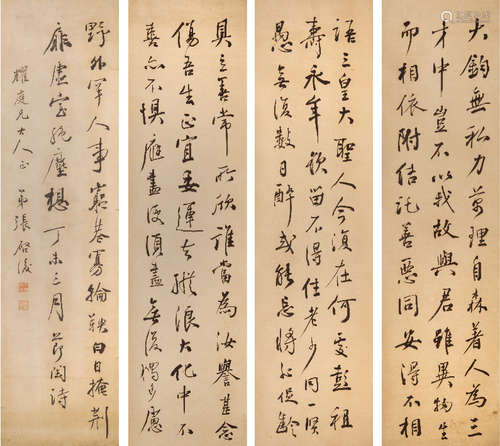 大鈞無私力萬理自森著人為三
才中豈不以我故與君雖異物生
而相依附結託善惡同安得不相
語三皇大聖人今復在何處彭祖
壽永年欲留不得住老少同一賢
愚無復數日醉或能忘將非促齡
具立善常所欣誰當為汝譽甚念
傷吾生正宜委運去縱浪大化中不
喜亦不懼應盡便須盡無復獨多慮
野外罕人事窮巷寡輪鞅白日掩荆
扉虛室絕塵想丁未三月節陶詩
耀庭兄大人正 弟張啓後